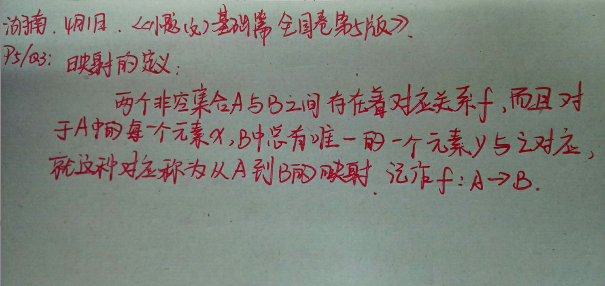 湖南. 4月1日. 《小题(文)基础篇 全国卷第5版》.
P5/Q3: 映射的定义:
两个非空集合A与B之间存在着对应关系f, 而且对
于A中的每一个元素x, B中总有唯一的一个元素y与之对应,
就这种对应称为从A到B的映射. 记作f: A→B.